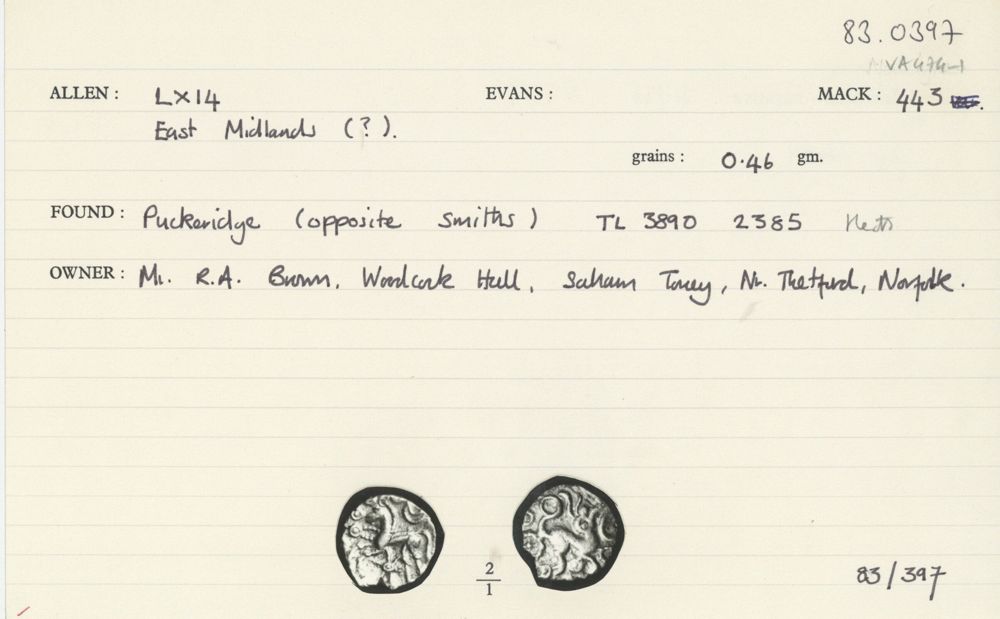 83.0397
VA474-1
ALLEN : LX14 EVANS : MACK : 443
East Midlands (?).
grains : 0.46 gm.
FOUND : Puckeridge (opposite Smiths) TL 3890 2385 Herts
OWNER : Mr. R.A. Brown, Woodcock Hall, Saham Toney, Nr. Thetford, Norfolk.
2
1
83/397